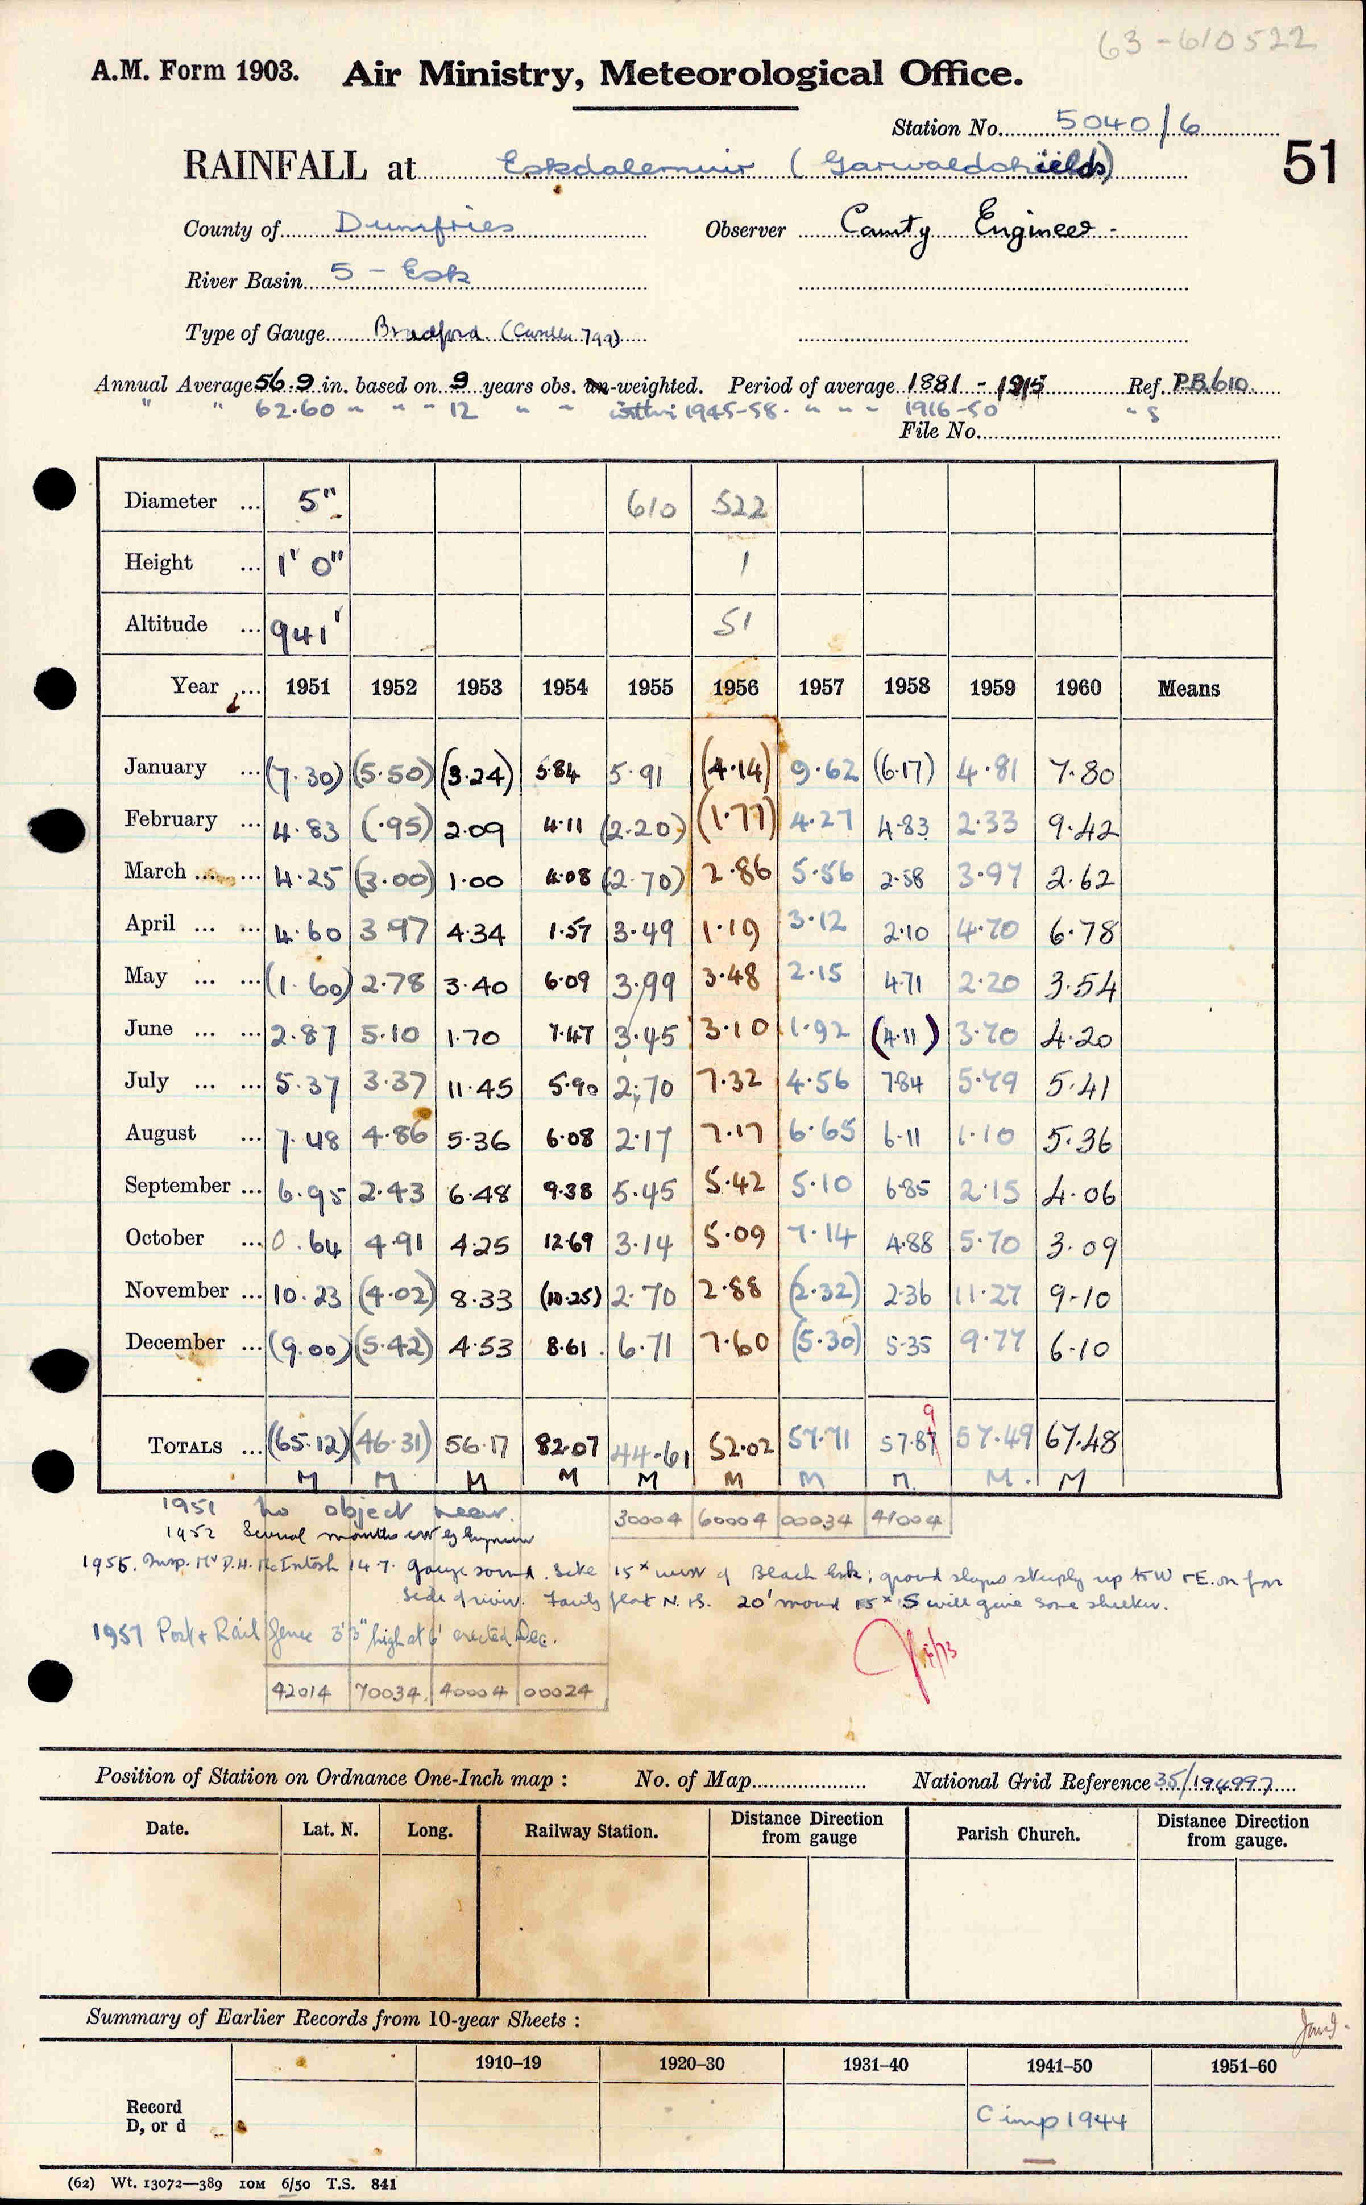 63-610522
A.M. Form 1903. Air Ministry, Meteorological Office.
Station No. 5040/6
RAINFALL at Eskdalemuir (Garwaldshields) 51
County of Dumfries Observer County Engineer.
River Basin 5 - Esk
Type of Gauge Bradford (Casella 799)
Annual Average 56.9 in. based on 9 years obs. un-weighted. Period of average 1881 - 1915 Ref. P.B.610.
" " 62.60 " " " 12 " " 1945-58. " " " 1916-50 " S
File No.
Diameter ... 5" 610 522
Height ... 1' 0" 1
Altitude ... 941' 51
Year ... 1951 1952 1953 1954 1955 1956 1957 1958 1959 1960 Means
January ... (7.30) (5.50) (3.24) 5.84 5.91 (4.14) 9.62 (6.17) 4.81 7.80
February ... 4.83 (.95) 2.09 4.11 (2.20) (1.77) 4.27 4.83 2.33 9.42
March ... ... 4.25 (3.00) 1.00 4.08 (2.70) 2.86 5.56 2.58 3.97 2.62
April ... ... 4.60 3.97 4.34 1.57 3.49 1.19 3.12 2.10 4.70 6.78
May ... ... (1.60) 2.78 3.40 6.09 3.99 3.48 2.15 4.71 2.20 3.54
June ... ... 2.87 5.10 1.70 7.47 3.45 3.10 1.92 (4.11) 3.70 4.20
July ... ... 5.37 3.37 11.45 5.90 2.70 7.32 4.56 7.84 5.79 5.41
August ... 7.48 4.86 5.36 6.08 2.17 7.17 6.65 6.11 1.10 5.36
September ... 6.95 2.43 6.48 9.38 5.45 5.42 5.10 6.85 2.15 4.06
October ... 0.64 4.91 4.25 12.69 3.14 5.09 7.14 4.88 5.70 3.09
November ... 10.23 (4.02) 8.33 (10.25) 2.70 2.88 (2.32) 2.36 11.27 9.10
December ... (9.00) (5.42) 4.53 8.61 6.71 7.60 (5.30) 5.35 9.77 6.10
9
TOTALS ... (65.12) (46.31) 56.17 82.07 44.61 52.02 57.71 57.87 57.49 67.48
M M M M M M M M M. M
1951 No object near. 30004 60004 00034 41004
1952 Several months
1955. Insp. Mr D.H. McIntosh 14.7. Gauge sound. Site 15x west of Black Esk; ground slopes steeply up to W + E. on far
side of river. Fairly flat N. + S. 20' mound 15x S will give some shelter.
1957 Post & Rail fence 3'3" high at 6' erected Dec.
42014 70034 40004 00024
Position of Station on Ordnance One-Inch map : No. of Map National Grid Reference 35/194997
Date. Lat. N. Long. Railway Station. Distance Direction from gauge Parish Church. Distance Direction from gauge.
Summary of Earlier Records from 10-year Sheets :
1910–19 1920–30 1931–40 1941–50 1951–60
Record D, or d C imp 1944
(62) Wt. 13072—389 10M 6/50 T.S. 841